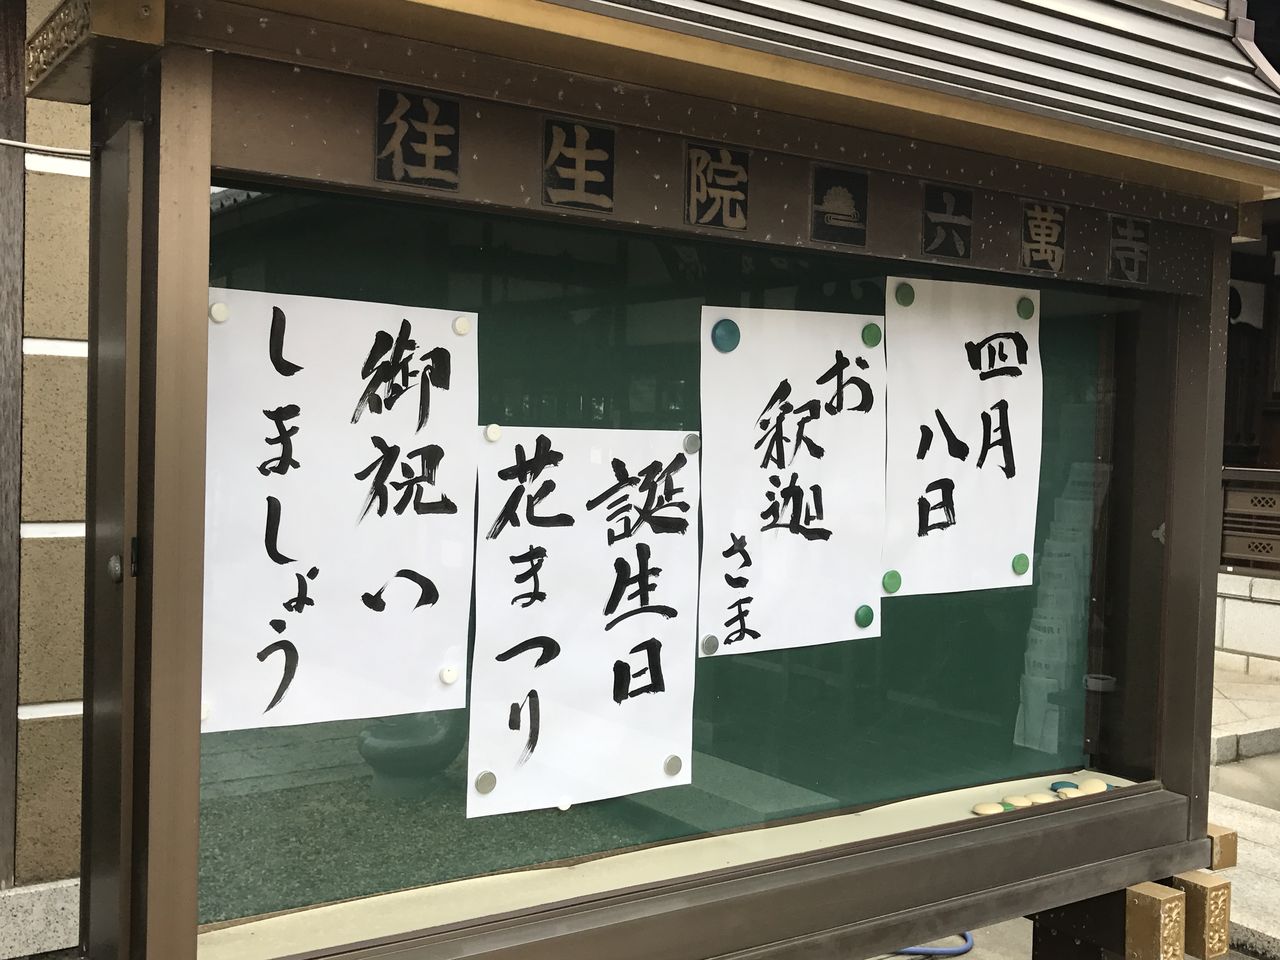 往生院 六萬寺
四月
八日
お
釈迦
さま
誕生日
花まつり
御祝い
しましょう